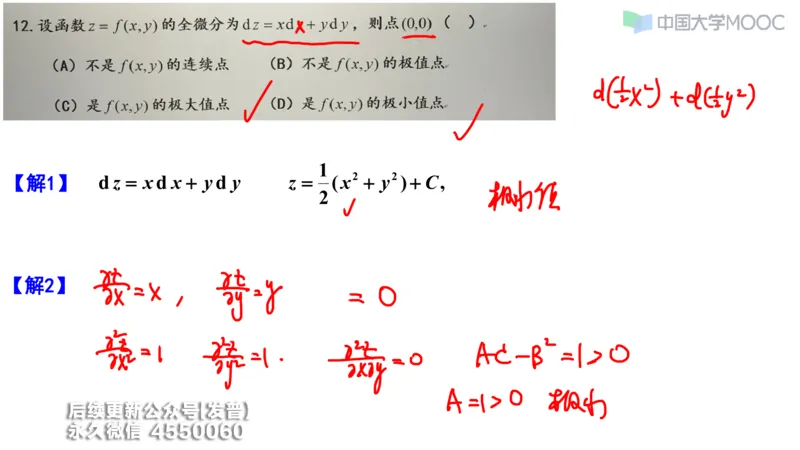 12. 设函数 z = f(x,y) 的全微分为 dz = xdx + ydy，则点 (0,0) （　）.
中国大学MOOC
(A) 不是 f(x,y) 的连续点　(B) 不是 f(x,y) 的极值点
(C) 是 f(x,y) 的极大值点　(D) 是 f(x,y) 的极小值点
d(½x²) + d(½y²)
【解1】 dz = xdx + ydy　z = ½(x² + y²) + C,
极小值
【解2】 ∂z/∂x = x , ∂z/∂y = y　= 0
∂²z/∂x² = 1　∂²z/∂y² = 1 .　∂²z/∂x∂y = 0　AC − B² = 1 > 0
A = 1 > 0　极小
后续更新公众号[发普]
永久微信 4550060